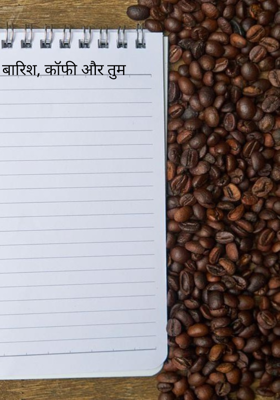 बारिश, कॉफी और तुम